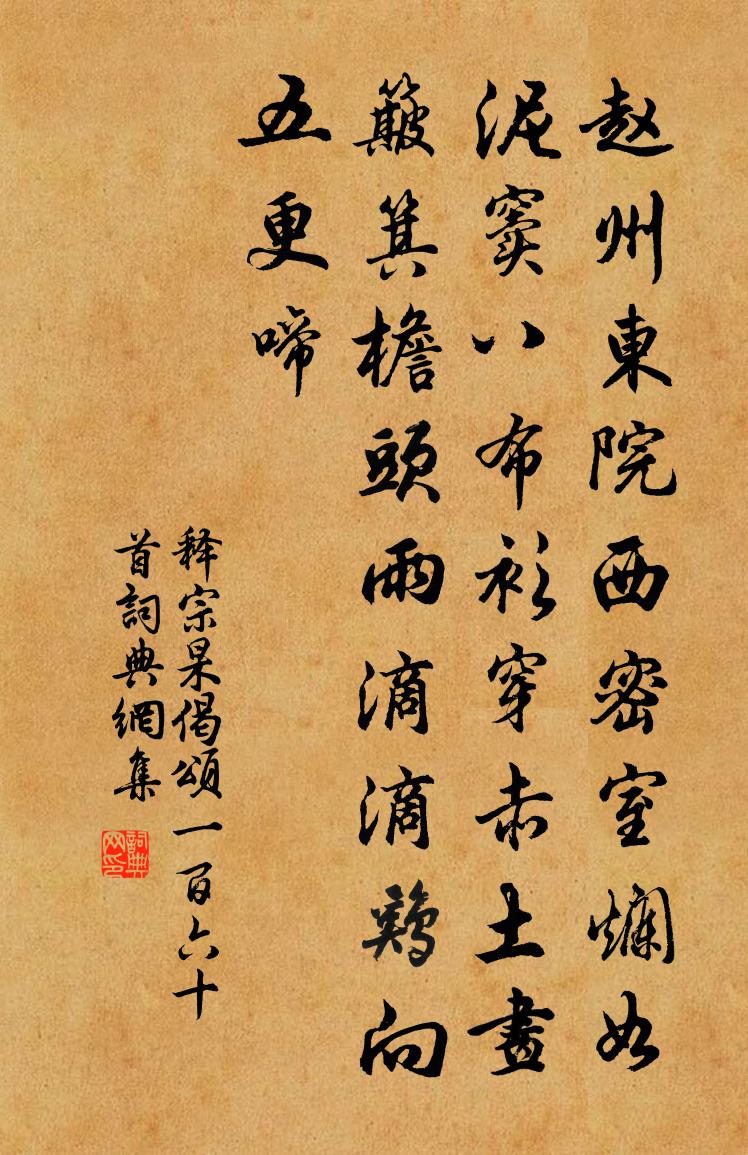 赵州東院西密室爛如
泥窦八布衫穿赤土畫
簸箕檐頭雨滴滴鷄向
五更啼
释宗杲偈頌一百六十
首詞典網集
詞典网印